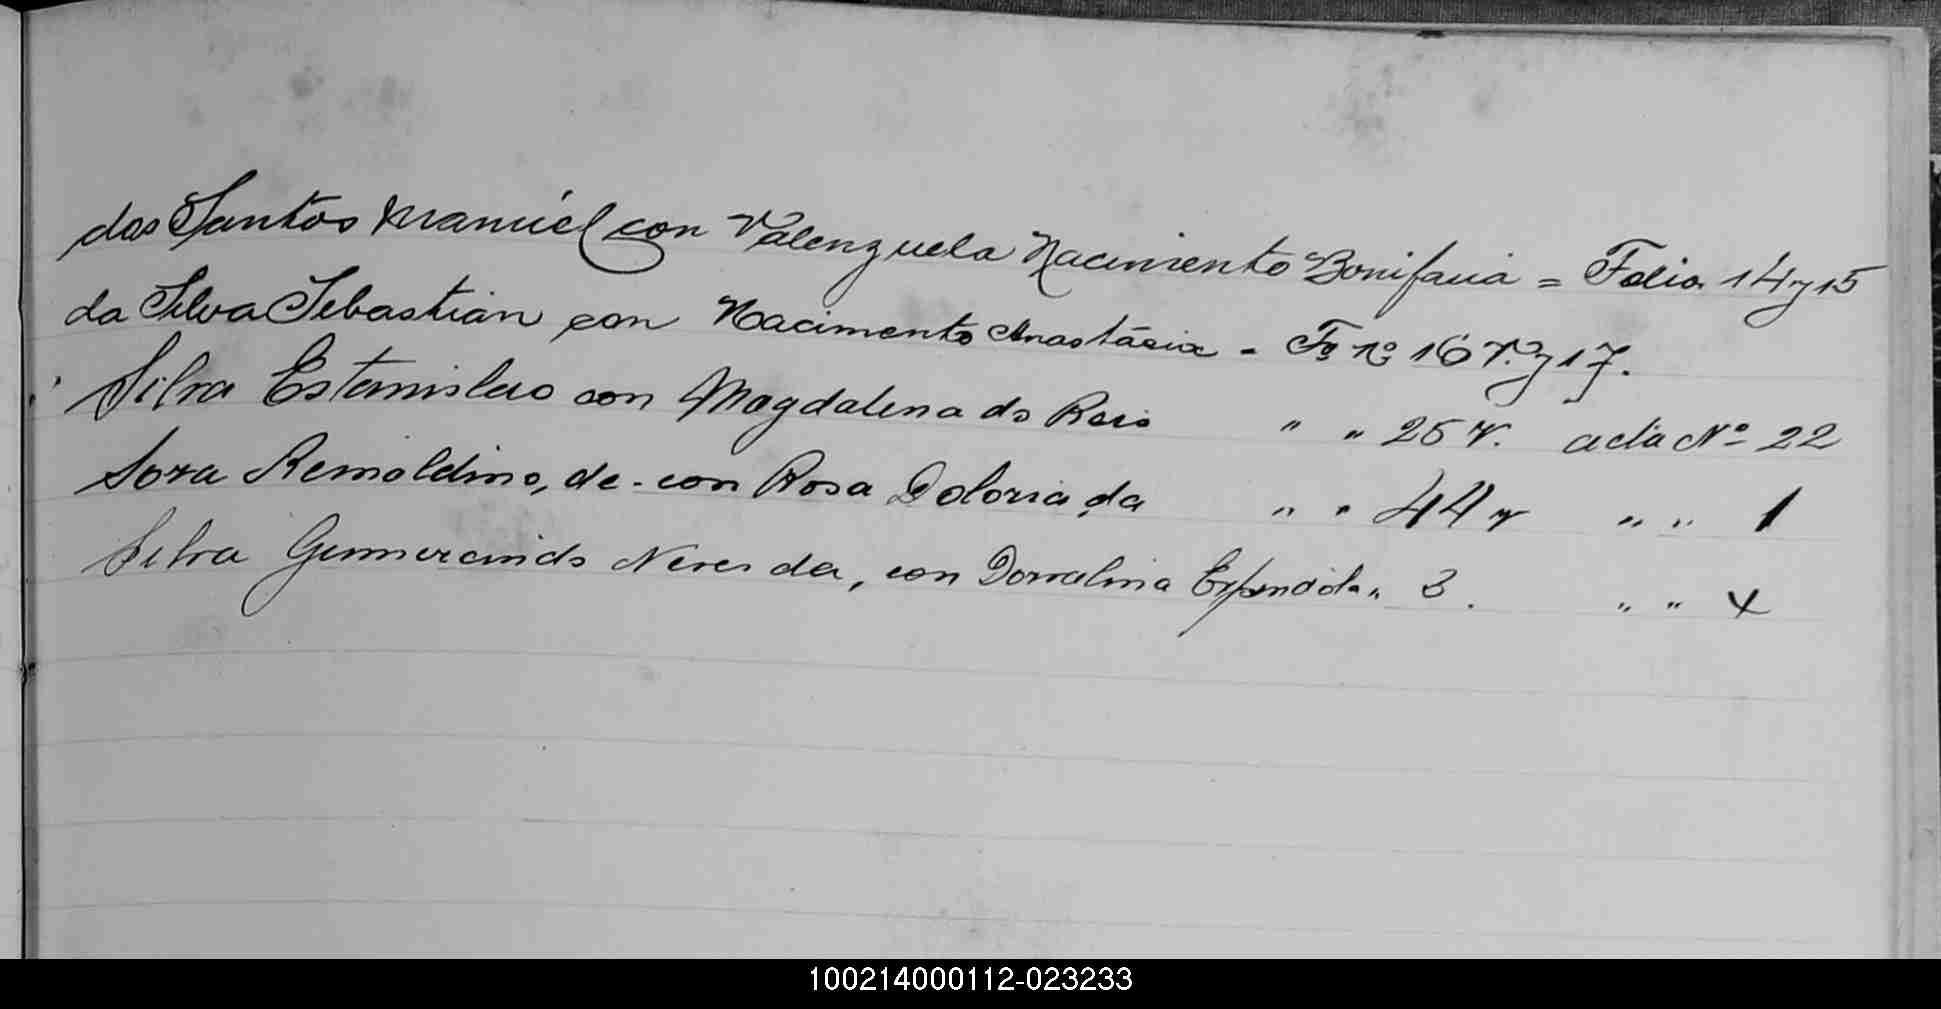 dos Santos Manuel con Valenzuela Nacimiento Bonifacia = Folio 14 y 15
da Silva Sebastian con Nacimento Anastácia - Fº nº 16 v. y 17.
Silva Estanislao con Magdalena do Reis " " 25 v. acta Nº 22
Soza Remoldino, de - con Rosa Doloria da " " 44 v " " 1
Silva Gumercindo Neves da, con Dorvalina Espindola " 3. " " 4
100214000112-023233